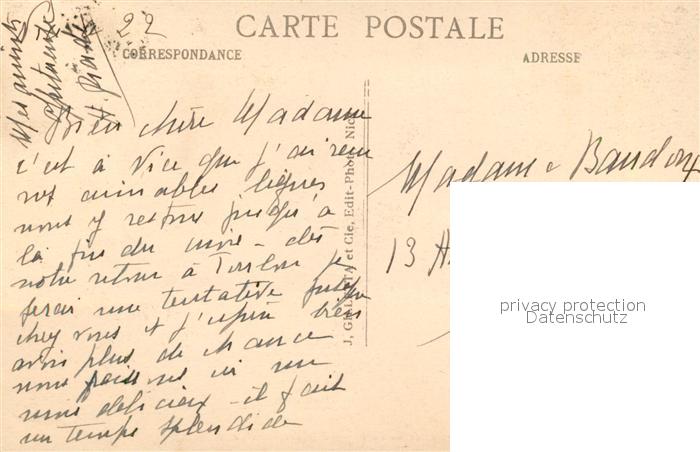 22
CARTE POSTALE
CORRESPONDANCE
ADRESSE
Bien chère Madame
c'est à Nice que j'ai reçu
vos aimables lignes
nous y restons jusqu'à
la fin du mois - dès
notre retour à Toulon je
ferai une tentative jusque
chez vous et j'espère bien
avoir plus de chance
nous faisons ici un
mois délicieux - il fait
un temps splendide
Mes amitiés
J. et Cie, Edit-Photo, Nice
Madame Baudoin
13
privacy protection
Datenschutz